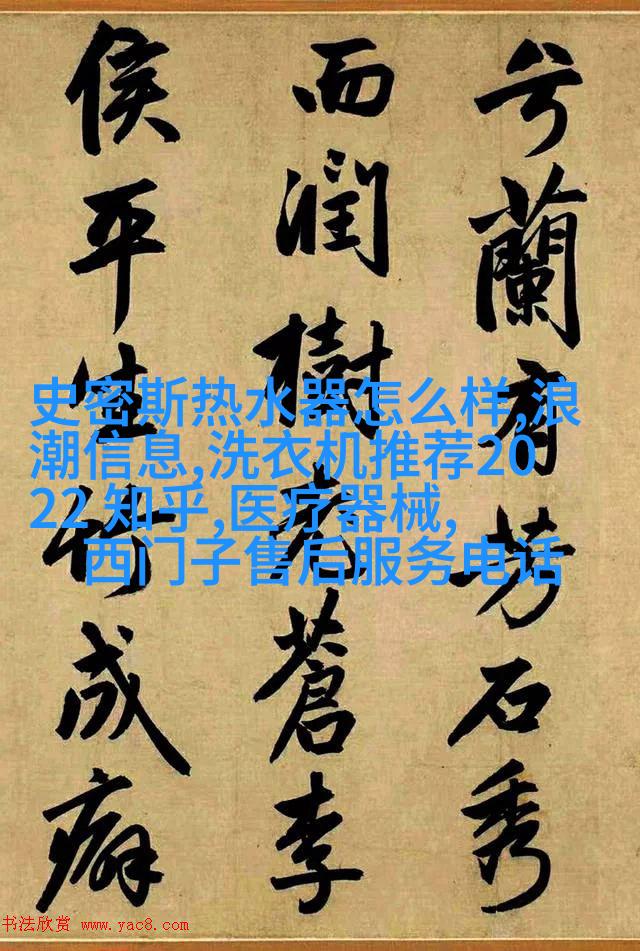 兮蘭芳石秀
而潤樹老蒼李
侯平生竹成癖
史密斯热水器怎么样,浪
潮信息,洗衣机推荐20
22 知乎,医疗器械,
西门子售后服务电话
书法欣赏 www.yac8.com